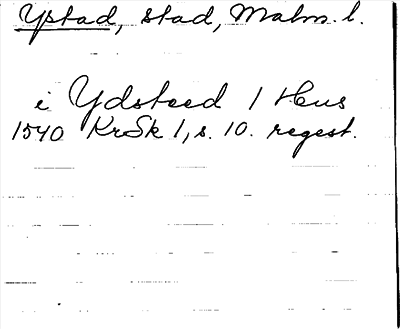 Ystad, stad, Malm. l.
i Ydsteed 1 Hus
1540 KrSk 1, s. 10. regest.